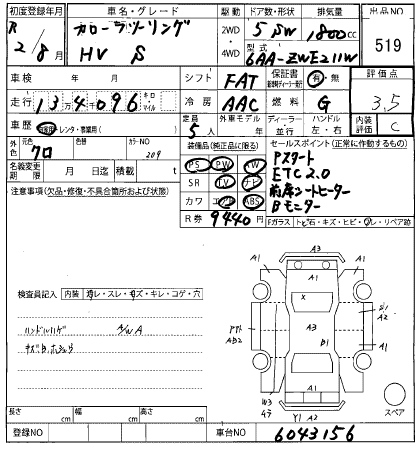 初度登録年月 車名・グレード 駆動 ドア数・形状 排気量 出品NO
R 2/8月 カローラツーリング HV S 2WD・4WD 5 SW 1800cc 519
型式 6AA-ZWE211W
車検 年 月 シフト FAT 保証書 有・無 評価点 3.5
走行 134096 キロ・マイル 冷房 AAC 燃料 G
車歴 自家用・レンタ・事業用( ) 定員 5人 外車モデル 年 ディーラー・並行 ハンドル 左・右 内装評価 C
色 クロ 元色 色替 カラーNO 209
装備品(純正品に限る) セールスポイント(正常に作動するもの)
名義変更期限 月 日迄 積載 t
PS PW AW
SR TV ナビ
カワ エアB ABS
R券 9440円
Pスタート
ETC2.0
前席シートヒーター
Bモニター
注意事項(欠品・修復・不具合箇所および状態)
Fガラス トビ石・キズ・ヒビ・ワレ・リペア跡
検査員記入 内装 ヨゴレ・スレ・キズ・キレ・コゲ・穴
ハンドルハゲ
A3
A1 A1 A1
X
A3
A2
B1
A1
AB2
W3
A1
Y1 A2
スペア
長さ cm 幅 cm 高さ cm
登録NO 車台NO 6043156